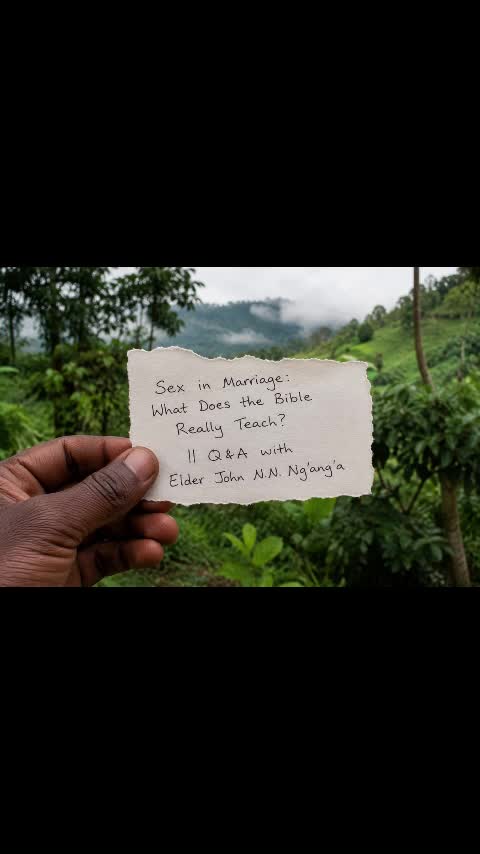 Sex in Marriage:
What Does the Bible
Really Teach?
|| Q&A with
Elder John N.N. Ng'ang'a